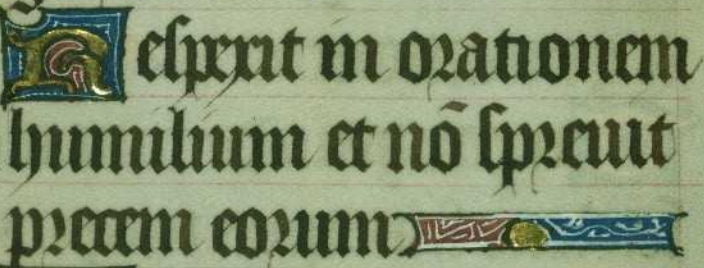 Respexit in orationem
humilium et nō spreuit
precem eorum